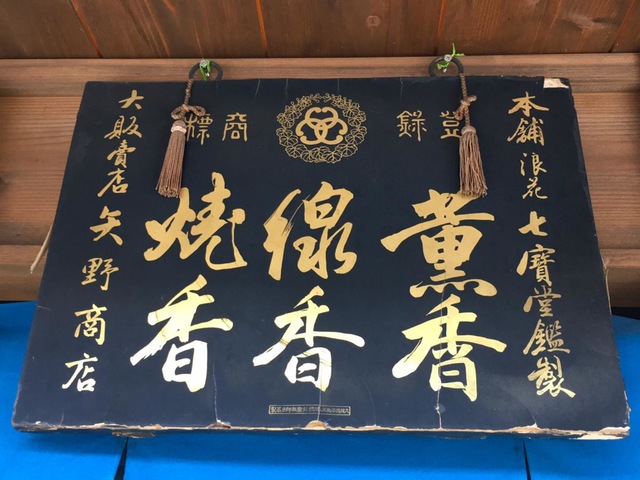 本舗浪花七寶堂鑑製
登録
商標
薫香
線香
焼香
大販賣店矢野商店